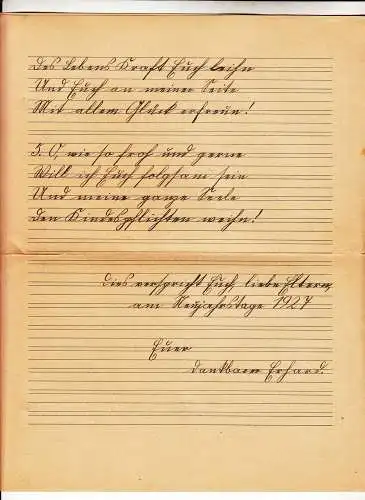 des Lebens Kraft Euch leihn
Und Euch an meiner Seite
Mit allem Glück erfreun!
5. O, wie so froh und gerne
Will ich Euch folgsam sein
Und meine ganze Seele
Den Kindespflichten weihn!
dies verspricht Euch, liebe Eltern,
am Neujahrstage 1927
Euer
dankbarer Erhard.